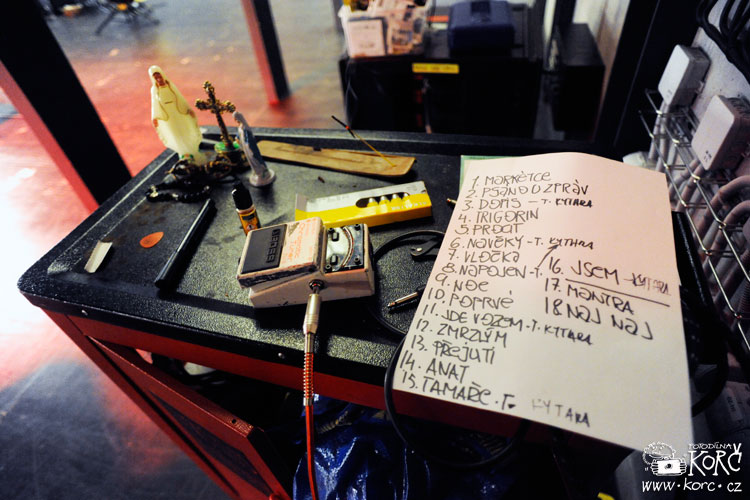 1. MARKÉTCE
2. PSÁNO U ZPRÁV
3. DOPIS - T. KYTARA
4. TRIGORIN
5. PRDAT
6. NAVĚKY - T. KYTARA
7. VLOČKA
8. NAPOJEN - T.
9. NOE
10. POPRVÉ
11. JDE VOZEM - T. KYTARA
12. ZMRZLÝM
13. PŘEJUTÍ
14. ANAT
15. TAMAŘE - T. KYTARA
16. JSEM - KYTARA
17. MANTRA
18 NAJ NAJ
BOSS
KORC
FOTODÍLNA
KORČ
www.korc.cz